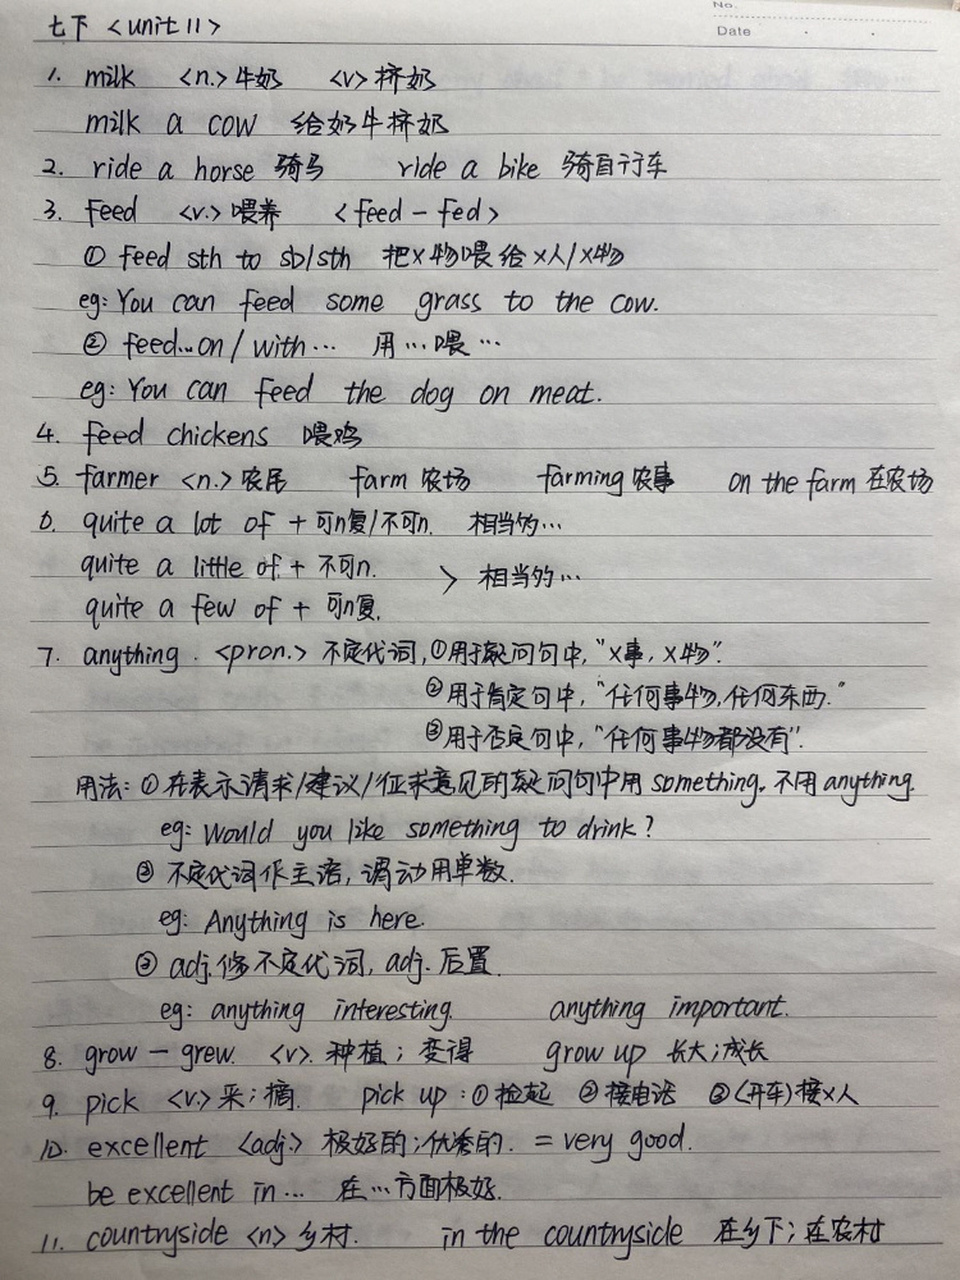 No.
Date
七下 <unit 11>
1. milk <n.> 牛奶 <v> 挤奶
milk a cow 给奶牛挤奶
2. ride a horse 骑马 ride a bike 骑自行车
3. feed <v.> 喂养 <feed - fed>
① feed sth to sb/sth 把X物喂给X人/X物
eg: You can feed some grass to the cow.
② feed...on / with... 用...喂...
eg: You can feed the dog on meat.
4. feed chickens 喂鸡
5. farmer <n.> 农民 farm 农场 farming 农事 on the farm 在农场
6. quite a lot of + 可n复/不可n. 相当的...
quite a little of + 不可n.
> 相当的...
quite a few of + 可n复.
7. anything. <pron.> 不定代词, ①用于疑问句中, "X事, X物".
②用于肯定句中, "任何事物, 任何东西."
③用于否定句中, "任何事物都没有".
用法: ① 在表示请求/建议/征求意见的疑问句中用 something. 不用 anything.
eg: Would you like something to drink?
② 不定代词作主语, 谓动用单数.
eg: Anything is here.
③ adj.修不定代词, adj. 后置.
eg: anything interesting. anything important.
8. grow - grew. <v>. 种植; 变得 grow up 长大; 成长
9. pick <v.> 采; 摘. pick up: ① 捡起 ② 接电话 ③ (开车)接X人
10. excellent <adj.> 极好的; 优秀的. = very good.
be excellent in... 在...方面极好.
11. countryside <n> 乡村. in the countryside 在乡下; 在农村